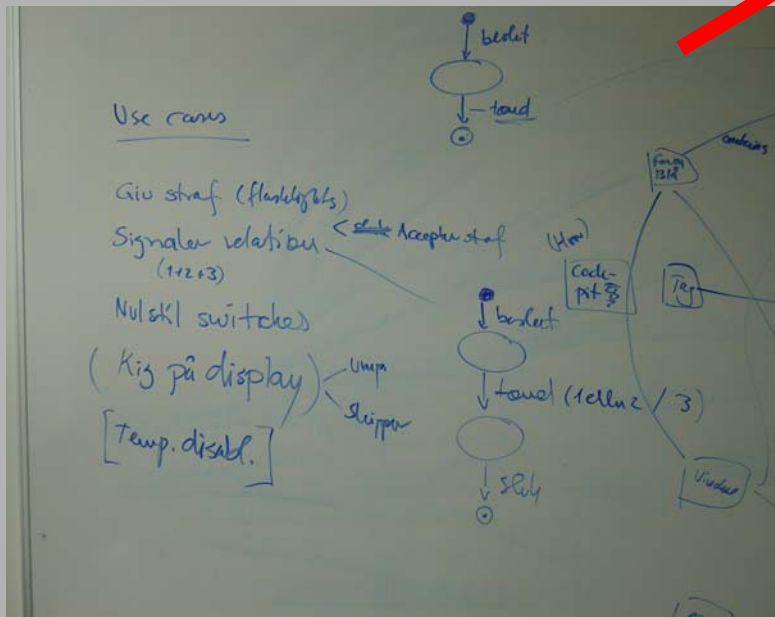 beslut
tænd
Use cases
Giv straf (flashlights)
Signaler relation < Accepter straf
(1+2+3)
Nulstil switches
(Kig på display) Ump
Skipper
[Temp. disabl.]
beslut
tænd (1 eller 2 / 3)
Sluk
Cock-
pit
Tag
Vindue